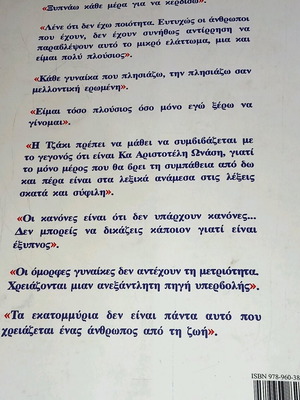 «Ξυπνάω κάθε μέρα για να κερδίσω»
«Λένε ότι δεν έχω ποιότητα. Ευτυχώς οι άνθρωποι
που έχουν, δεν έχουν συνήθως αντίρρηση να
παραβλέψουν αυτό το μικρό ελάττωμα, μια και
είμαι πολύ πλούσιος».
«Κάθε γυναίκα που πλησιάζω, την πλησιάζω σαν
μελλοντική ερωμένη».
«Είμαι τόσο πλούσιος όσο μόνο εγώ ξέρω να
γίνομαι».
«Η Τζάκι πρέπει να μάθει να συμβιβάζεται με
το γεγονός ότι είναι Κα Αριστοτέλη Ωνάση, γιατί
το μόνο μέρος που θα βρει τη συμπάθεια από δω
και πέρα είναι στα λεξικά ανάμεσα στις λέξεις
σκατά και σύφιλη».
«Οι κανόνες είναι ότι δεν υπάρχουν κανόνες...
Δεν μπορείς να δικάζεις κάποιον γιατί είναι
έξυπνος».
«Οι όμορφες γυναίκες δεν αντέχουν τη μετριότητα.
Χρειάζονται μιαν ανεξάντλητη πηγή υπερβολής».
«Τα εκατομμύρια δεν είναι πάντα αυτό που
χρειάζεται ένας άνθρωπος από τη ζωή».
ISBN 978-960-38